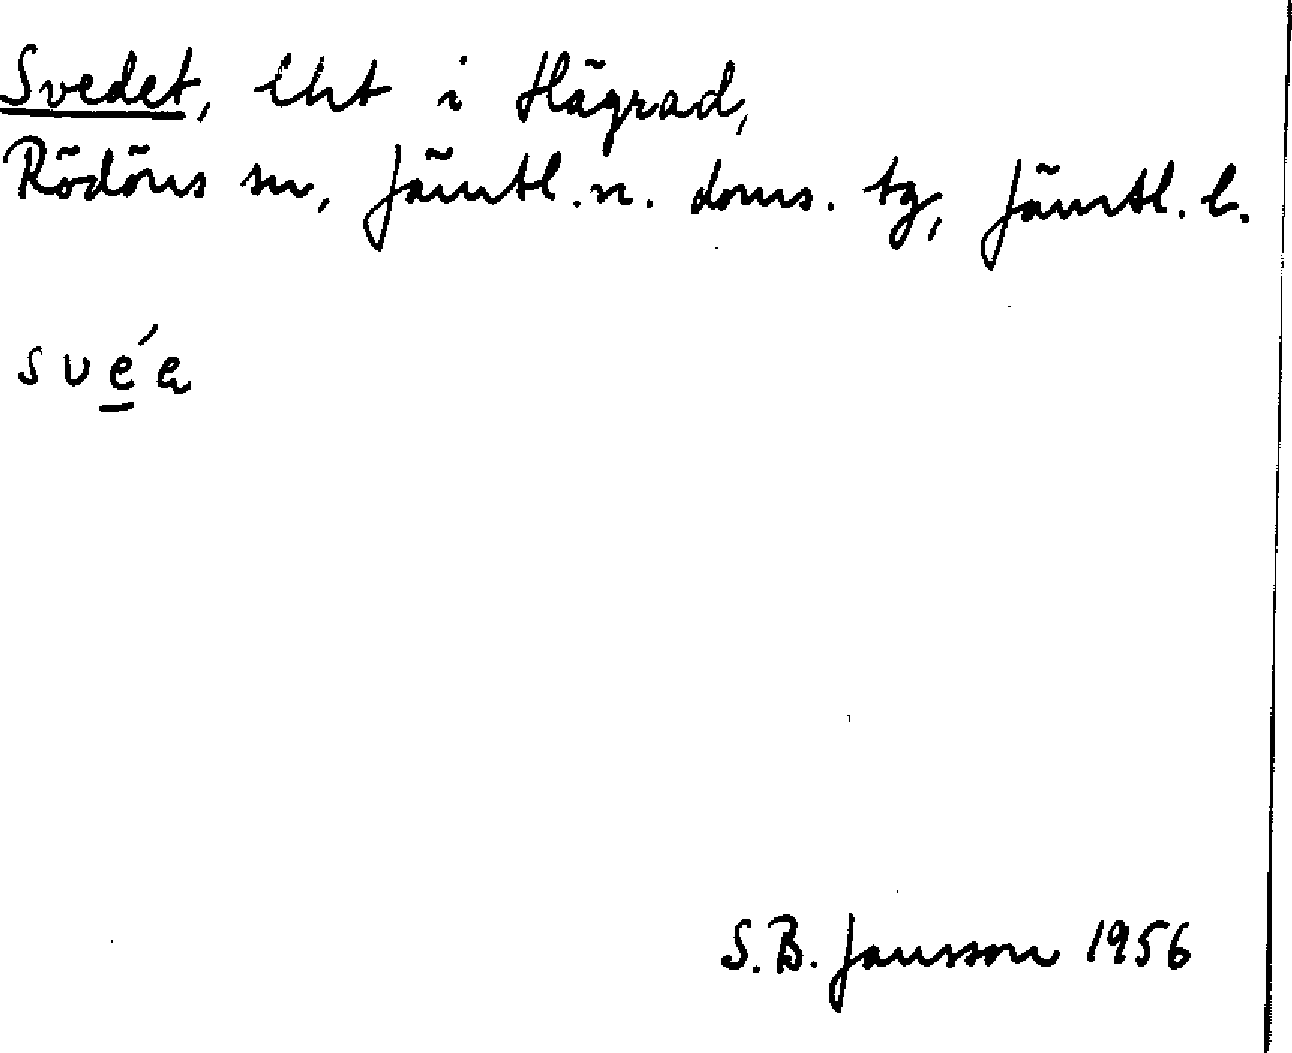 Svedet, lht i Hägrad,
Rödöns sn, Jämtl. n. doms. tg, Jämtl. l.
svéa
S.B. Jansson 1956